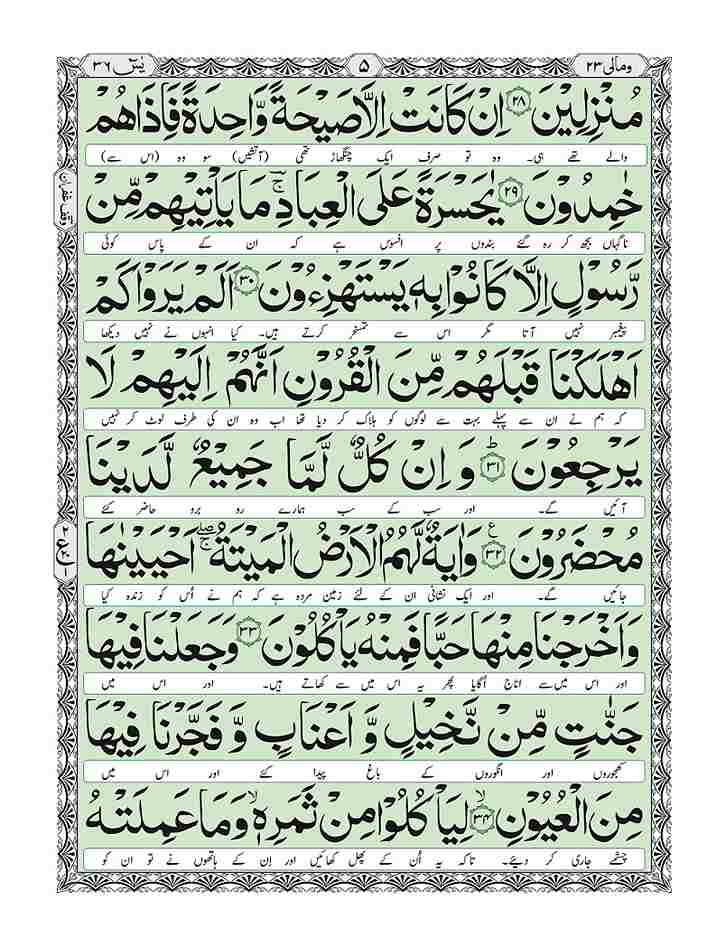 ومالی ۲۳ ۵ یٰسٓ ۳۶
مُنْزِلِیْنَ ﴿۲۸﴾ اِنْ كَانَتْ اِلَّا صَیْحَةً وَّاحِدَةً فَاِذَا هُمْ
والے تھے ہی۔ وہ تو صرف ایک چنگھاڑ تھی (آتشیں) سو وہ (اس سے)
خٰمِدُوْنَ ﴿۲۹﴾ یٰحَسْرَةً عَلَى الْعِبَادِ ۚ مَا یَاْتِیْهِمْ مِّنْ
وقف غفران
ناگہاں بجھ کر رہ گئے بندوں پر افسوس ہے کہ ان کے پاس کوئی
رَّسُوْلٍ اِلَّا كَانُوْا بِهٖ یَسْتَهْزِءُوْنَ ﴿۳۰﴾ اَلَمْ یَرَوْا كَمْ
پیغمبر نہیں آتا مگر اس سے تمسخر کرتے ہیں۔ کیا انہوں نے نہیں دیکھا
اَهْلَكْنَا قَبْلَهُمْ مِّنَ الْقُرُوْنِ اَنَّهُمْ اِلَیْهِمْ لَا
کہ ہم نے ان سے پہلے بہت سے لوگوں کو ہلاک کر دیا تھا اب وہ ان کی طرف لوٹ کر نہیں
یَرْجِعُوْنَ ؕ﴿۳۱﴾ وَ اِنْ كُلٌّ لَّمَّا جَمِیْعٌ لَّدَیْنَا
آئیں گے۔ اور سب کے سب ہمارے رو برو حاضر کئے
مُحْضَرُوْنَ ﴿۳۲﴾ؑ وَاٰیَةٌ لَّهُمُ الْاَرْضُ الْمَیْتَةُ ۖۚ اَحْیَیْنٰهَا
جائیں گے۔ اور ایک نشانی ان کے لئے زمین مردہ ہے کہ ہم نے اُس کو زندہ کیا
وَاَخْرَجْنَا مِنْهَا حَبًّا فَمِنْهُ یَاْكُلُوْنَ ﴿۳۳﴾ وَجَعَلْنَا فِیْهَا
اور اس میں سے اناج اگایا پھر یہ اس میں سے کھاتے ہیں۔ اور اس میں
جَنّٰتٍ مِّنْ نَّخِیْلٍ وَّ اَعْنَابٍ وَّ فَجَّرْنَا فِیْهَا
کھجوروں اور انگوروں کے باغ پیدا کئے اور اس میں
مِنَ الْعُیُوْنِ ۙ﴿۳۴﴾ لِیَاْكُلُوْا مِنْ ثَمَرِهٖ ۙ وَمَا عَمِلَتْهُ
چشمے جاری کر دیئے۔ تاکہ یہ اُن کے پھل کھائیں اور اِن کے ہاتھوں نے تو ان کو